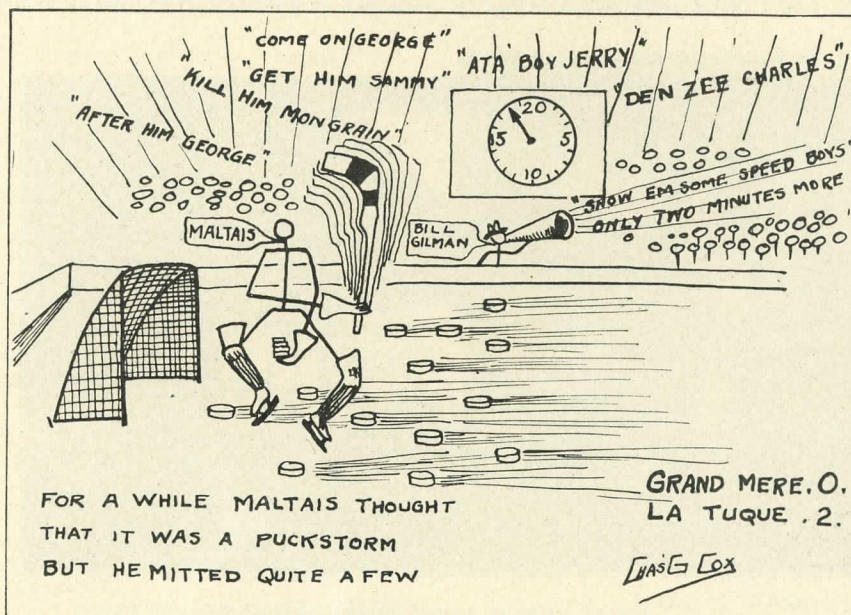 "COME ON GEORGE"
"GET HIM SAMMY"
"KILL HIM MONGRAIN"
"AFTER HIM GEORGE"
"ATA' BOY JERRY"
"DEN ZEE CHARLES"
20
15
5
10
"SHOW EM SOME SPEED BOYS"
ONLY TWO MINUTES MORE
MALTAIS
BILL
GILMAN
FOR A WHILE MALTAIS THOUGHT
THAT IT WAS A PUCKSTORM
BUT HE MITTED QUITE A FEW
GRAND MERE. 0.
LA TUQUE . 2.
CHAS G COX